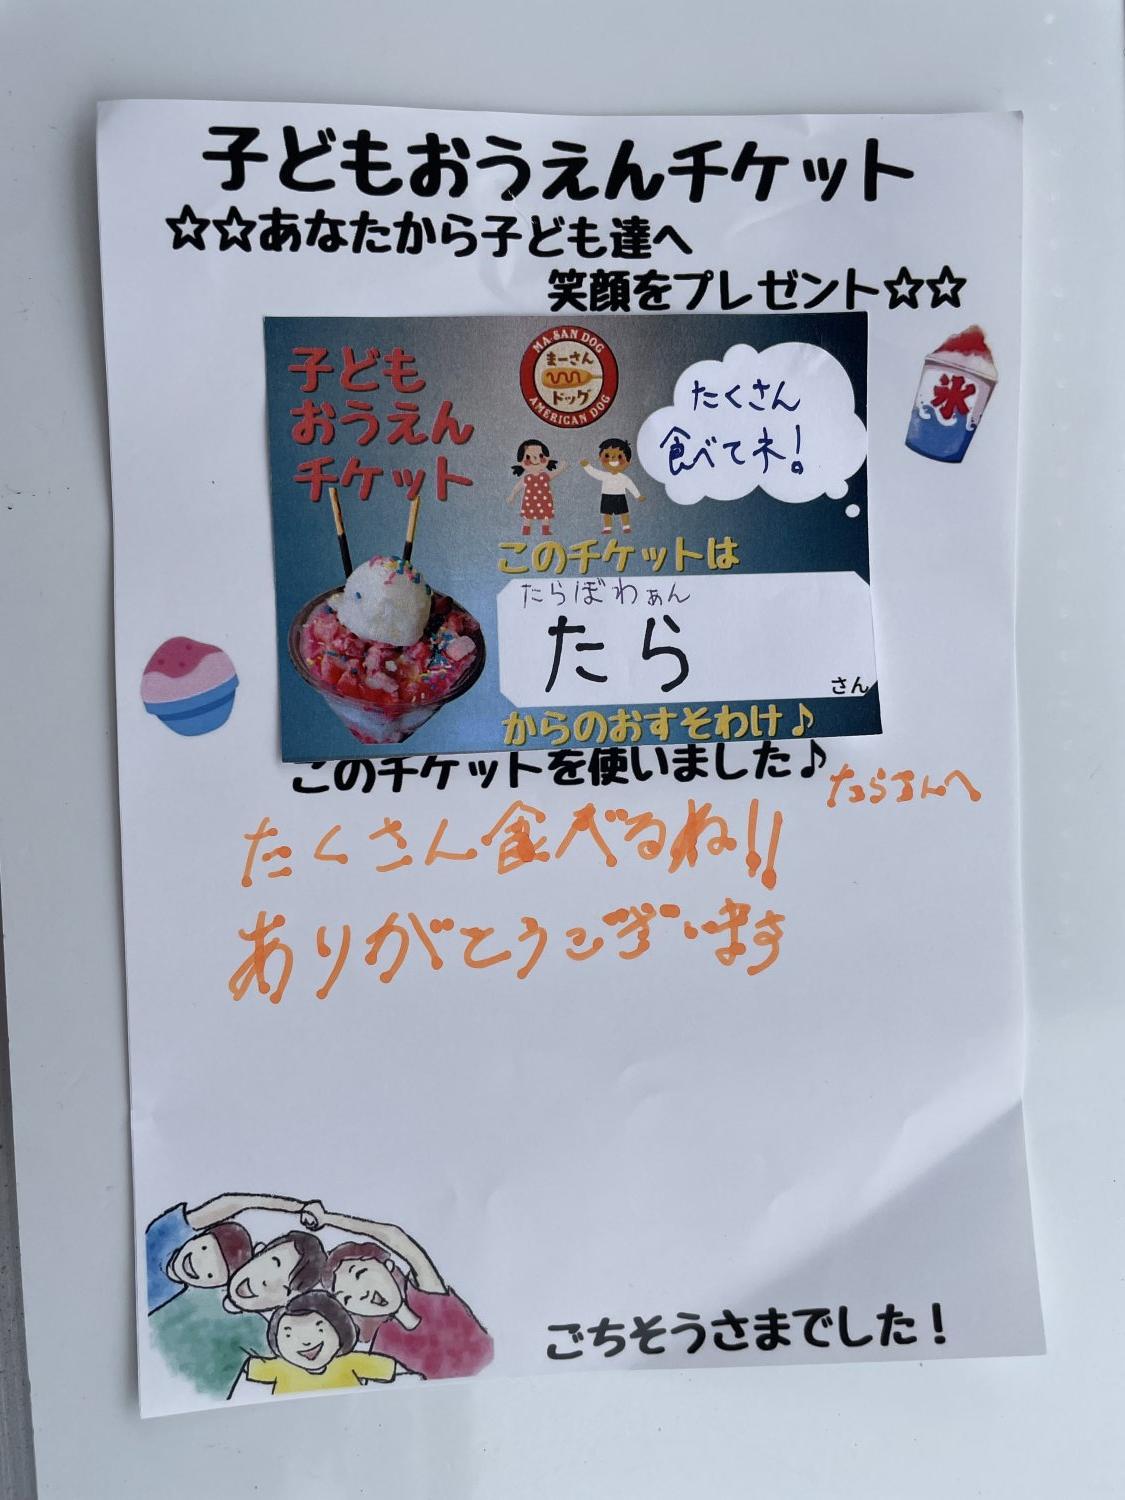 子どもおうえんチケット
☆☆あなたから子ども達へ
笑顔をプレゼント☆☆
氷
子ども
おうえん
チケット
MA-SAN DOG
まーさん
ドッグ
AMERICAN DOG
たくさん
食べてネ!
このチケットは
たらぼわぁん
たら
さん
からのおすそわけ♪
このチケットを使いました♪
たらさんへ
たくさん食べるね!!
ありがとうございます
ごちそうさまでした!